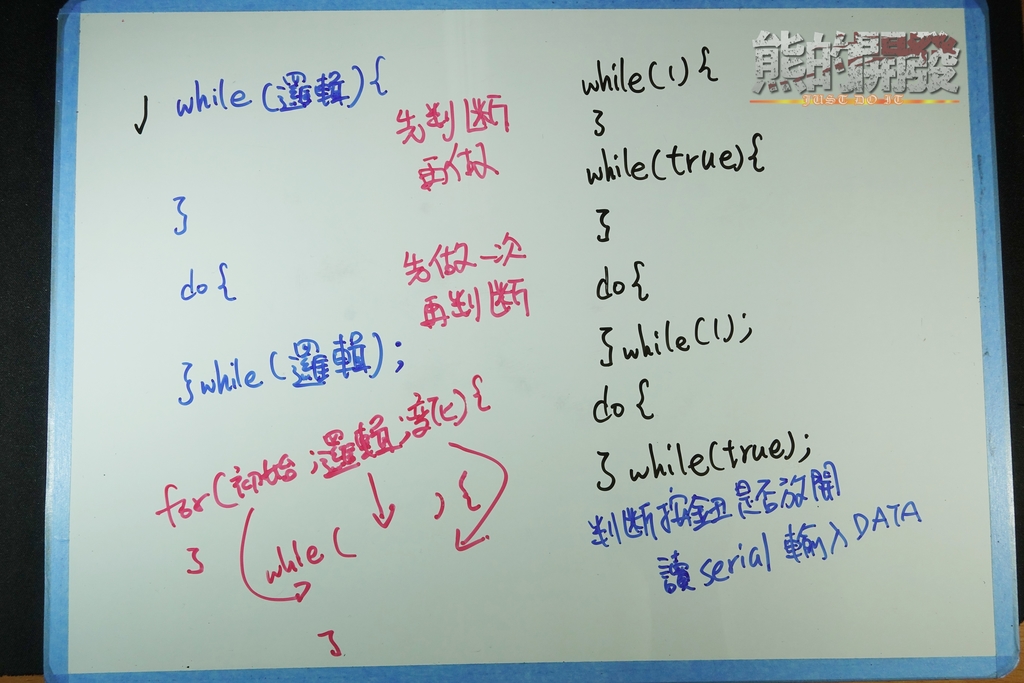 while(邏輯){
先判断
再做
}
do{
先做一次
再判断
}while(邏輯);
for(初始;邏輯;变化){
}
while(
){
}
while(1){
}
while(true){
}
do{
}while(1);
do{
}while(true);
判断按鈕是否放開
讀serial輸入DATA
熊的開發
JUST DO IT